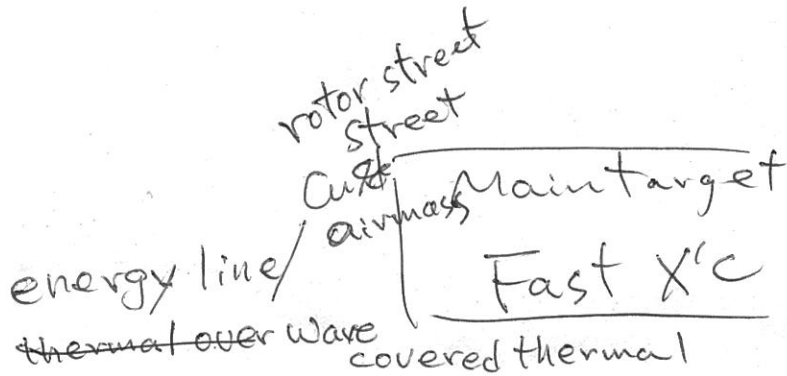 rotor street
street
airmass
Main target
Fast X'C
energy line/
~~thermal over~~ wave
covered thermal